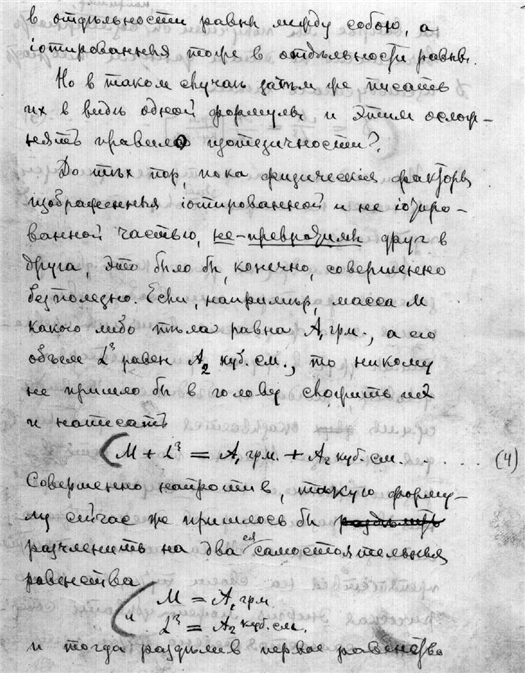 в отдѣльности равны между собою, а
іотированныя тоже в отдѣльности равны.
Но в таком случаѣ зачѣм же писать
их в видѣ одной формулы и этим ослож-
нять правило изотодичности?
До тѣх пор, пока физическіе факторы
изображенные іотированной и не іотиро-
ванной частью, не-превратимы друг в
друга, это было бы, конечно, совершенно
безполезно. Если, напримѣр, масса M
какого либо тѣла равна A₁ грм., а его
объем L³ равен A₂ куб. см., то никому
не пришло бы в голову сложить их
и написать
M + L³ = A₁ грм. + A₂ куб. см. . . . . (4)
Совершенно напротив, такую форму-
лу сейчас же пришлось бы
расчленить на два самостоятельныя
равенства
M = A₁ грм.
и L³ = A₂ куб. см.
и тогда раздѣлив первое равенство